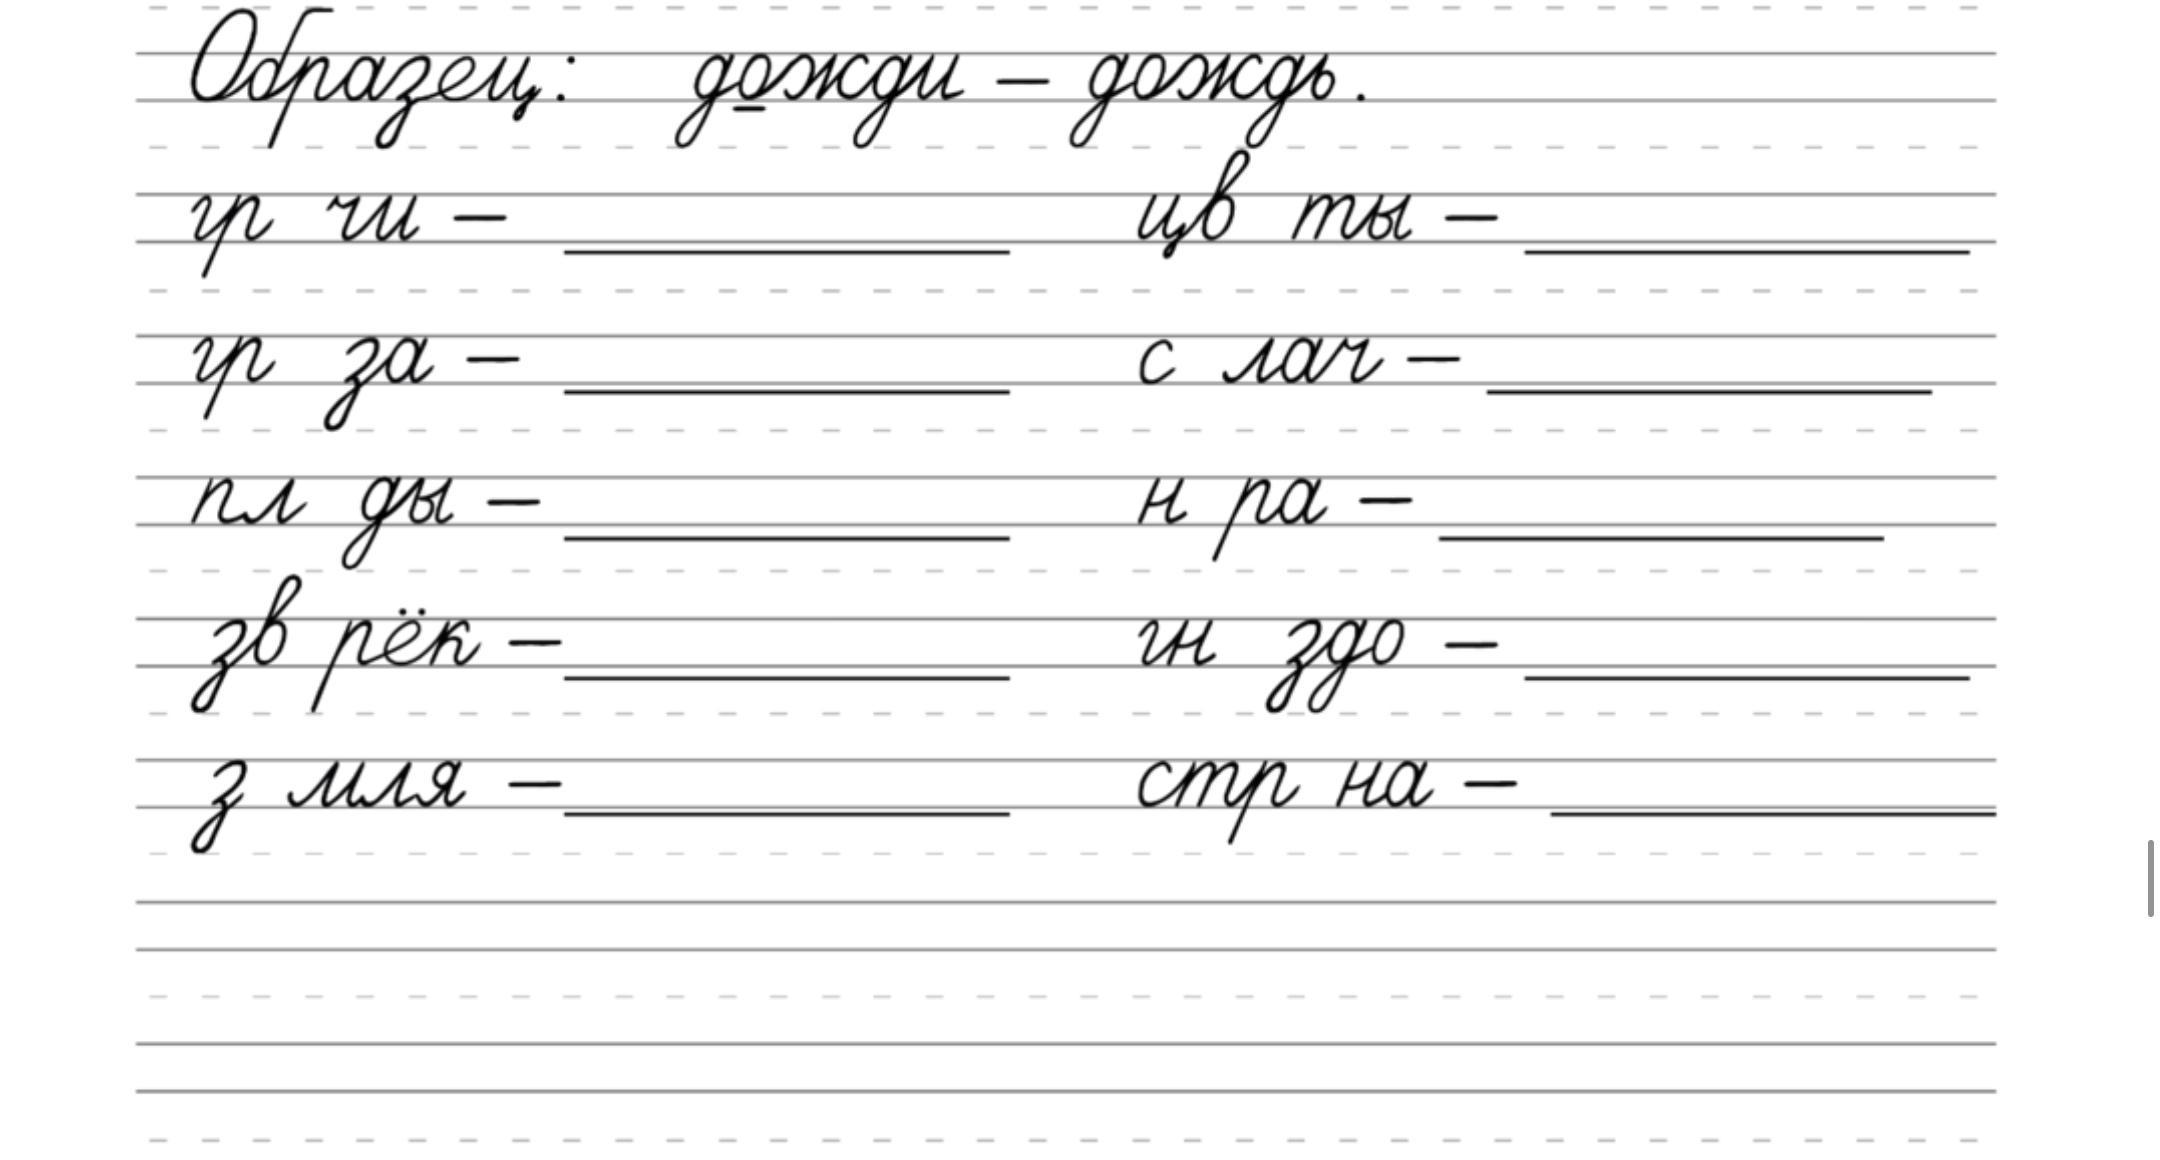 Образец: дожди – дождь.
гр чи – ____________ цв ты – ____________
гр за – ____________ с лач – ____________
пл ды – ____________ н ра – ____________
зв рёк – ____________ гн здо – ____________
з мля – ____________ стр на – ____________